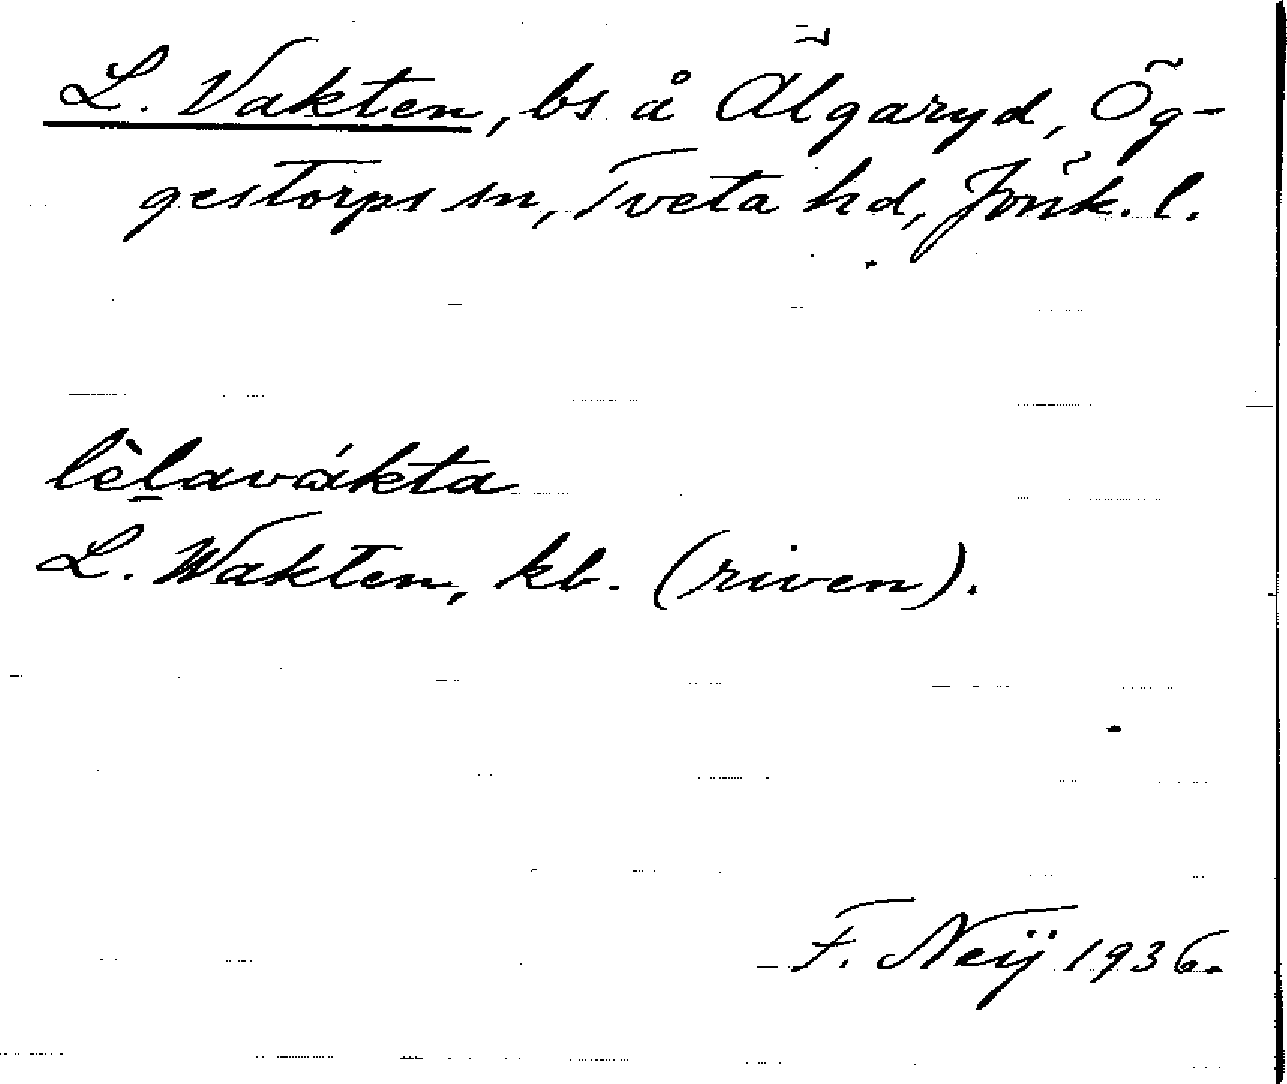 L. Vakten, bs å Älgaryd, Ög-
gestorps sn, Tveta hd, Jönk. l.
lèḻavákta
L. Wakten, kb. (riven).
F. Neij 1936.